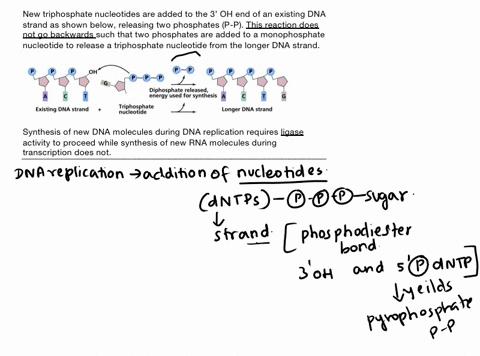 New triphosphate nucleotides are added to the 3' OH end of an existing DNA
strand as shown below, releasing two phosphates (P-P). This reaction does
not go backwards such that two phosphates are added to a monophosphate
nucleotide to release a triphosphate nucleotide from the longer DNA strand.
P P P OH P P P P P P P P P
G
A C T A C T G
Diphosphate released,
energy used for synthesis
Existing DNA strand + Triphosphate nucleotide Longer DNA strand
Synthesis of new DNA molecules during DNA replication requires ligase
activity to proceed while synthesis of new RNA molecules during
transcription does not.
DNA replication → addition of nucleotides.
(dNTPs) - P - P - P - sugar
↓
strand. [ phosphodiester
bond.
3'OH and 5' P dNTP ]
↓ yeilds
pyrophosphate
P-P